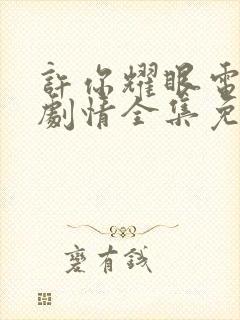 許你耀眼電
劇情全集免
甆有錢